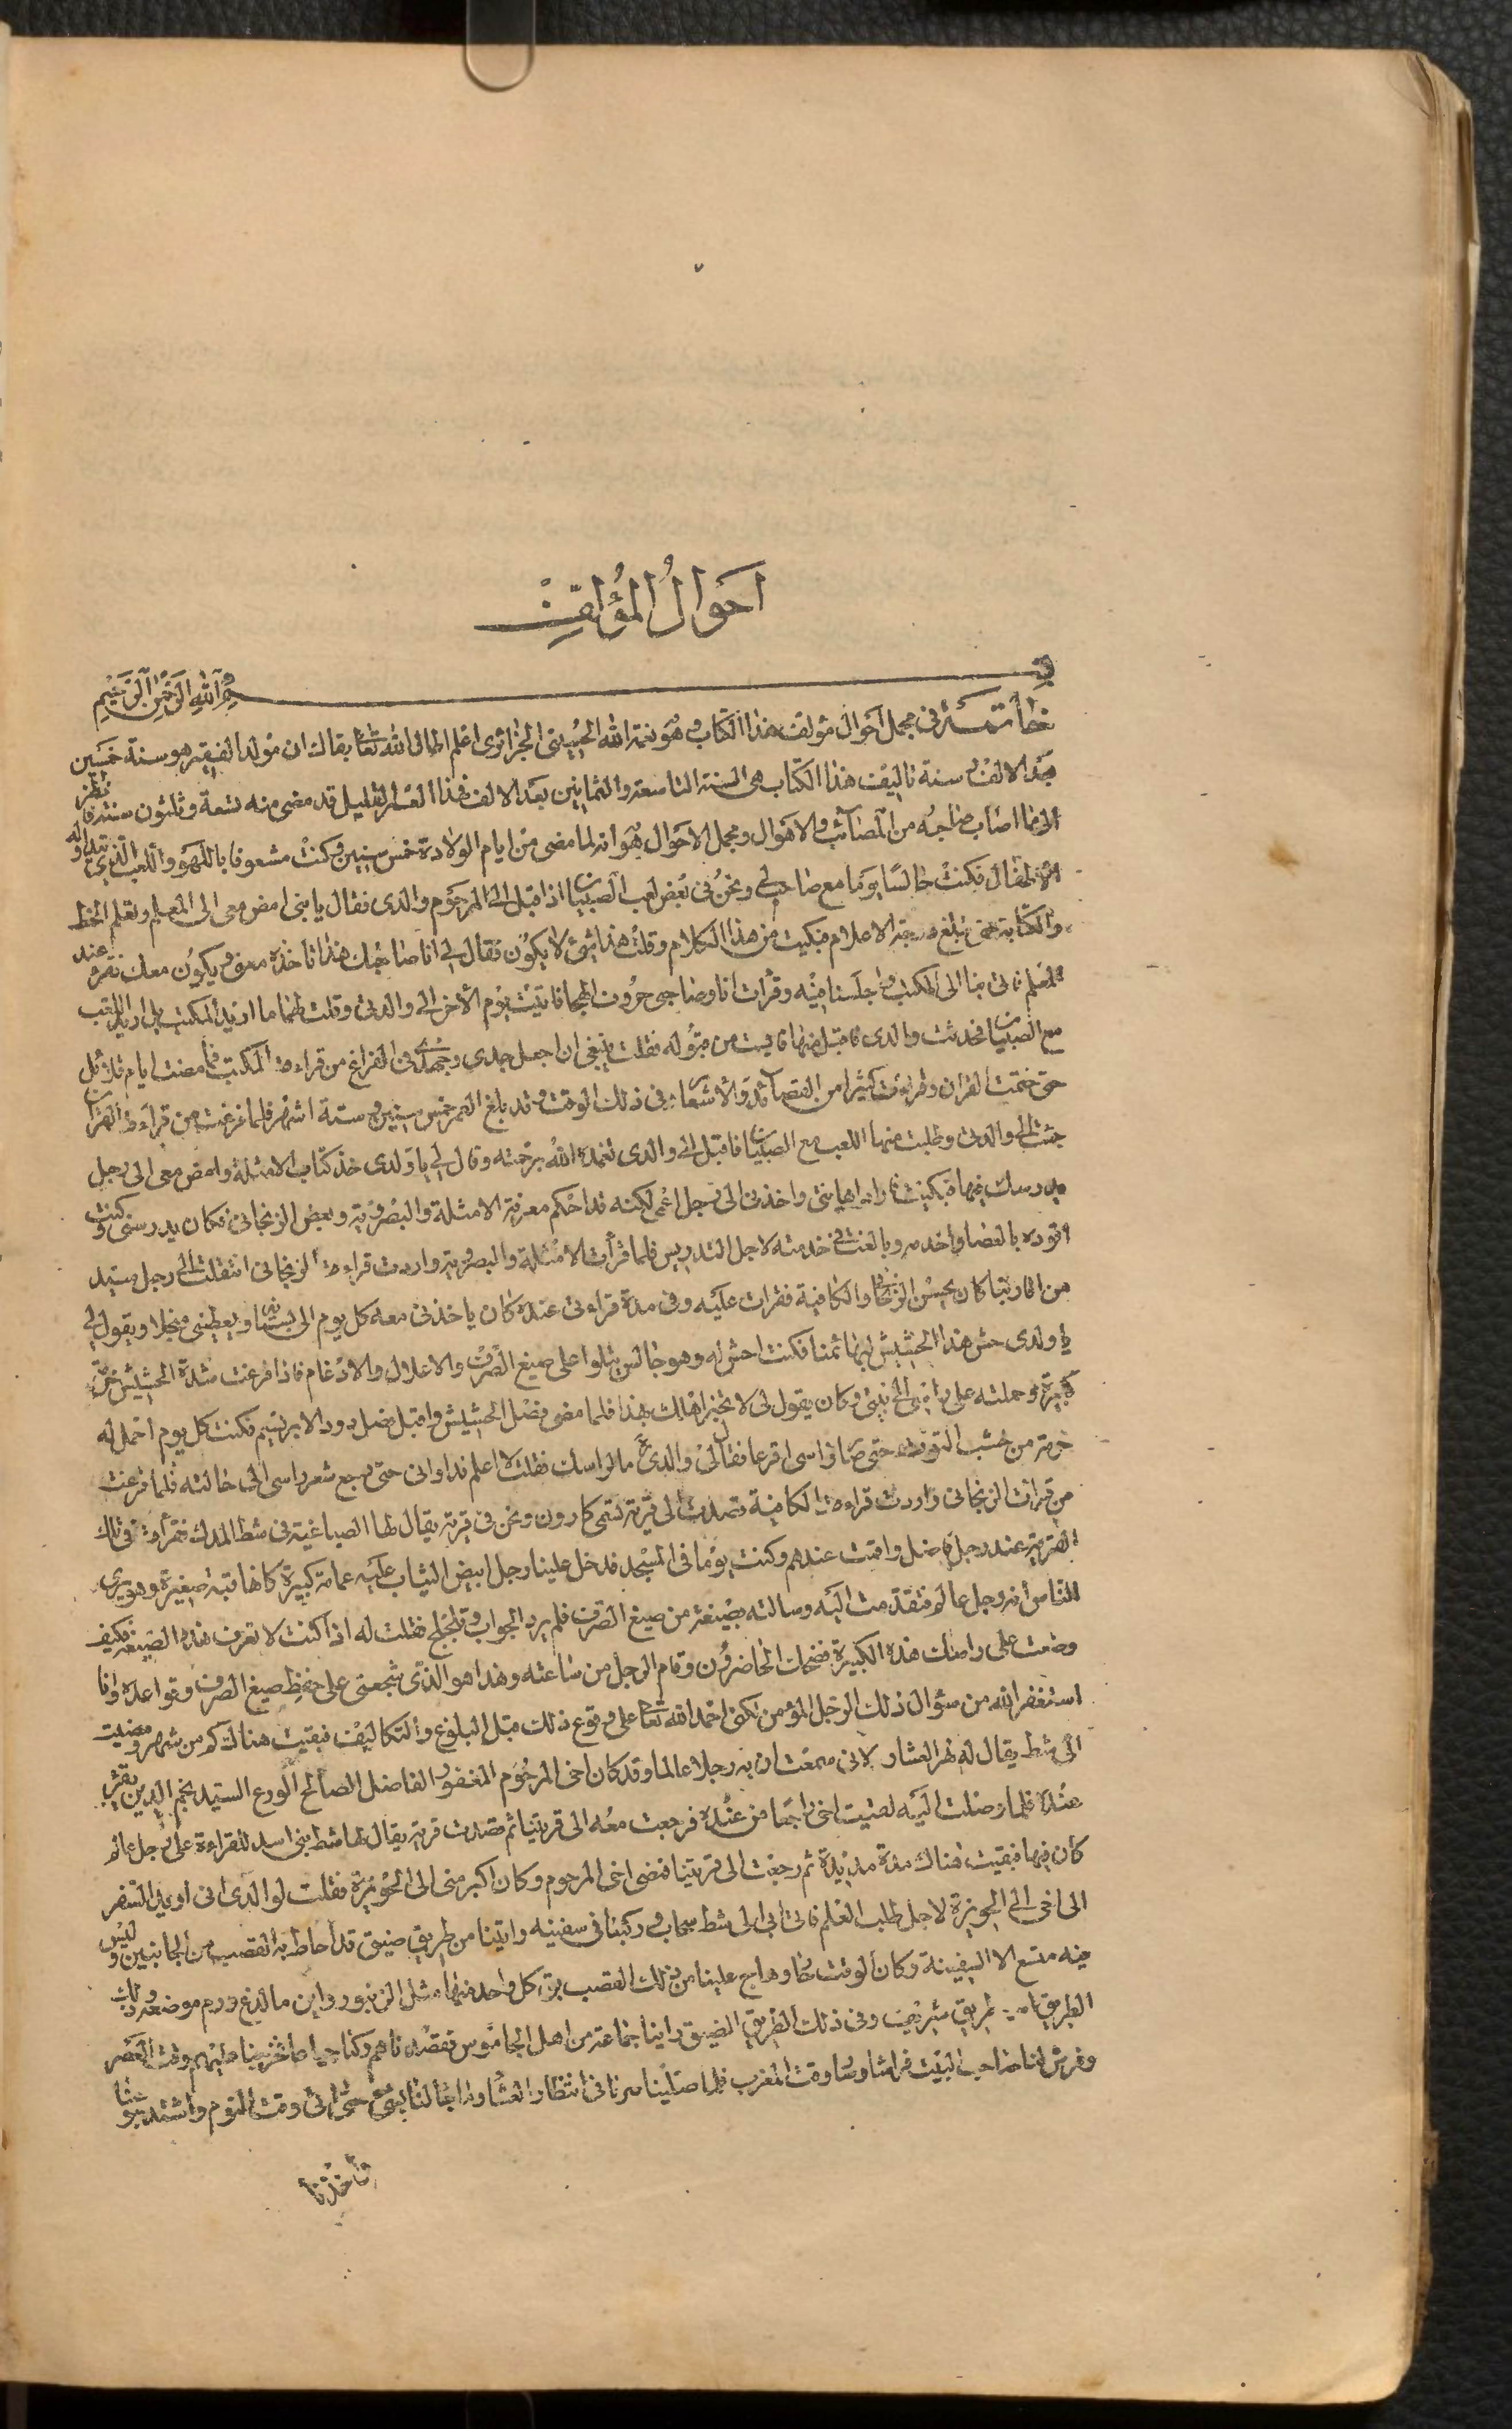 احوالُ المُؤلِّفِ
بِسْمِ اللهِ الرَّحْمٰنِ الرَّحِيْمِ
خاتمة في مجمل احوال مؤلف هذا الكتاب وهو نعمة الله الحسيني الجزائري اعلم اطال الله تعالى بقاك ان مولد الفقير هو سنة خمسين
بعد الالف وسنة تاليف هذا الكتاب هي السنة التاسعة والثمانين بعد الالف فهذا العمر القليل قد مضى منه تسعة وثلثون سنة فانظر
الى ما اصاب صاحبه من المصائب والاهوال ومجمل الاحوال هو انه لما مضى من ايام الولادة خمس سنين وكنت مشعوفا باللهو واللعب الذي يتداوله
الاطفال فكنت جالسا يوما مع صاحب لي ونحن في بعض لعب الصبيان اذ اقبل الي المرحوم والدي فقال يا بني امض معي الى المعلم وتعلم الخط
والكتابة حتى تبلغ درجة الاعلام فبكيت من هذا الكلام وقلت هذا شيئ لا يكون فقال لي انا صاحبك هذا ناخذه معنا ويكون معك تقرء عند
المعلم فاتى بنا الى المكتب واجلسنا فيه وقرأت انا وصاحبي حروف الهجا فاتيت يوم الاخر الى والدتي وقلت لها ما اريد المكتب بل اريد اللعب
مع الصبيان فحدثت والدي فما قبل منها فايست من قبوله فقلت ينبغي ان اجعل جدي وجهدي في الفراغ من قراءة المكتب فما مضت ايام قلائل
حتى ختمت القران وقرأت كثيرا من القصائد والاشعار في ذلك الوقت وقد بلغ العمر خمس سنين وستة اشهر فلما فرغت من قراءة القران
جئت الى والدتي وطلبت منها اللعب مع الصبيان فاقبل الي والدي تغمده الله برحمته وقال لي يا ولدي خذ كتاب الامثلة وامض معي الى رجل
يدرسك فيها فبكيت فاراد اهانتي واخذني الى رجل اعمى لكنه قد احكم معرفة الامثلة والبصروية وبعض الزنجاني فكان يدرسني وكنت
اقوده بالعصا واخدمه وبالغت في خدمته لاجل التدريس فلما قرأت الامثلة والبصروية واردت قراءة الزنجاني انتقلت الى رجل سيد
من اقاربنا كان يحسن الزنجاني والكافية فقرات عليه وفي مدة قراءتي عنده كان ياخذني معه كل يوم الى بستانه ويعطيني منجلا ويقول لي
يا ولدي حش هذا الحشيش لبهائمنا فكنت احش له وهو جالس يتلوا على صيغ الصرف والاعلال والادغام فاذا فرغت شددت الحشيش حزمة
كبيرة وحملته على راسي الى بيته وكان يقول لي لا تخبر اهلك بهذا فلما مضى فصل الحشيش واقبل فصل دود الابريسم فكنت كل يوم احمل له
حزمة من خشب التوت حتى صار راسي اقرعا فقال لي والدي ما لراسك فقلت لا اعلم فداواني حتى رجع شعر راسي الى حالته فلما فرغت
من قرائة الزنجاني واردت قراءة الكافية قصدت الى قرية تسمى كارون ونحن في قرية يقال لها الصباغية في شط المدك فقرأت في تلك
القرية عند رجل فاضل واقمت عندهم وكنت يوما في المسجد فدخل علينا رجل ابيض الثياب عليه عمامة كبيرة كانها قبة صغيرة وهو يرى
للناس انه رجل عالم فتقدمت اليه وسالته بصيغة من صيغ الصرف فلم يرد الجواب وتلجلج فقلت له اذا كنت لا تعرف هذه الصيغة فكيف
وضعت على راسك هذه الكبيرة فضحك الحاضرون وقام الرجل من ساعته وهذا هو الذي شجعني على حفظ صيغ الصرف وقواعده وانا
استغفر الله من سؤال ذلك الرجل المؤمن لكني احمد الله تعالى على وقوع ذلك قبل البلوغ والتكاليف فبقيت هناك كم من شهر ومضيت
الى شط يقال له نهر العشار لاني سمعت ان به رجلا عالما وقد كان اخي المرحوم المغفور الفاضل الصالح الورع السيد نجم الدين يقرء
عنده فلما وصلت اليه لقيت اخي راجعا من عنده فرجعت معه الى قريتنا ثم قصدت قرية يقال لها شط بني اسد للقراءة على رجل عالم
كان فيها فبقيت هناك مدة مديدة ثم رجعت الى قريتنا فمضى اخي المرحوم وكان اكبر مني الى الحويزة فقلت لوالدي اني اريد السفر
الى اخي الى الحويزة لاجل طلب العلم فاتى بي الى شط سحاب وركبنا في سفينة واتينا من طريق ضيق قد احاط به القصب من الجانبين وليس
فيه متسع الا السفينة وكان الوقت حارا وهاج علينا من ذلك القصب بق كل واحد منها مثل الزنبور واين ما لدغ ورم موضعه وذلك
الطريق اسمه طريق شريف وفي ذلك الطريق الضيق راينا جماعة من اهل الجاموس فقصدناهم وكنا جياعا فخرجنا عليهم وقت العصر
وفرش لنا صاحب البيت فراشا وصار وقت المغرب فلما صلينا صرنا في انتظار العشا وما جاء لنا بشئ حتى اتى وقت النوم واشتد جوعنا
فاخذنا